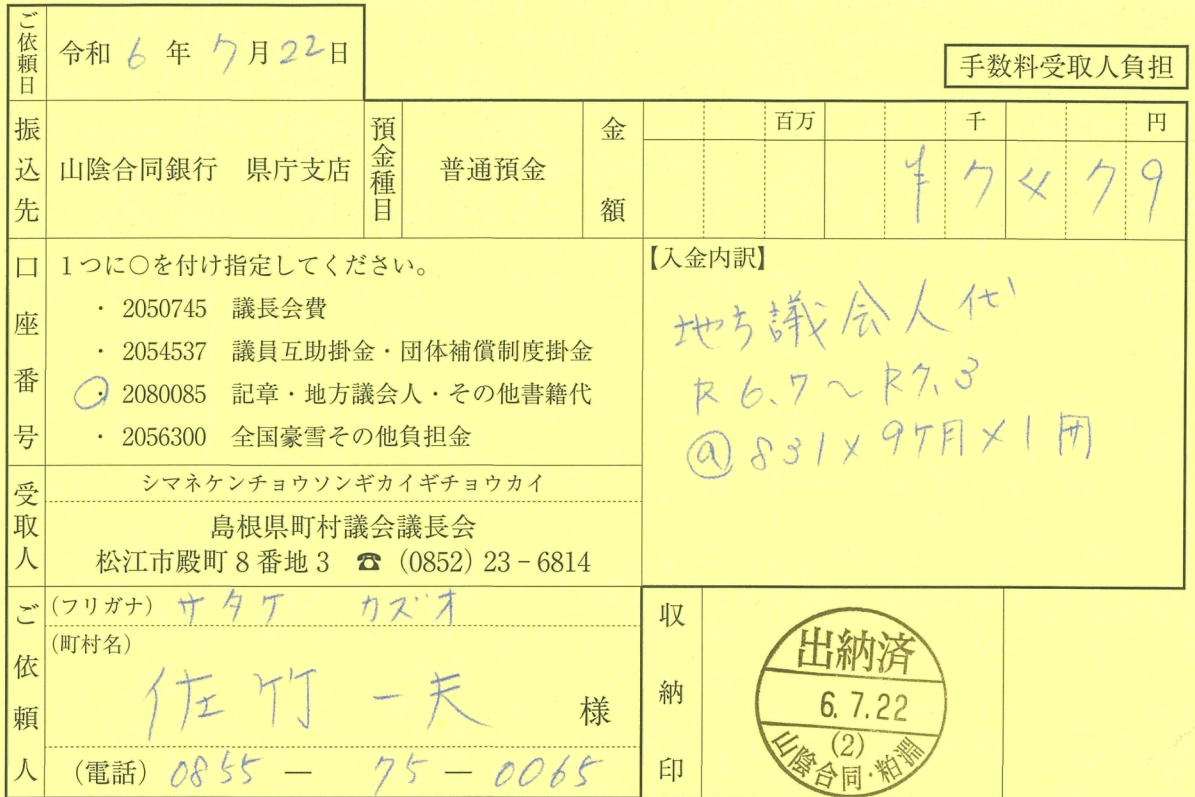 ご依頼日
令和 6 年 7 月 22 日
手数料受取人負担
振込先
山陰合同銀行 県庁支店
預金種目
普通預金
金額
百万 千 円
¥7479
口座番号
1つに○を付け指定してください。
・ 2050745 議長会費
・ 2054537 議員互助掛金・団体補償制度掛金
・ 2080085 記章・地方議会人・その他書籍代
・ 2056300 全国豪雪その他負担金
【入金内訳】
地方議会人代
R6.7～R7.3
@831×9ケ月×1冊
受取人
シマネケンチョウソンギカイギチョウカイ
島根県町村議会議長会
松江市殿町8番地3 ☎ (0852) 23-6814
ご依頼人
(フリガナ) サタケ カズオ
(町村名)
佐竹 一夫 様
(電話) 0855 — 75 — 0065
収納印
出納済
6.7.22
(2)
山陰合同・粕淵